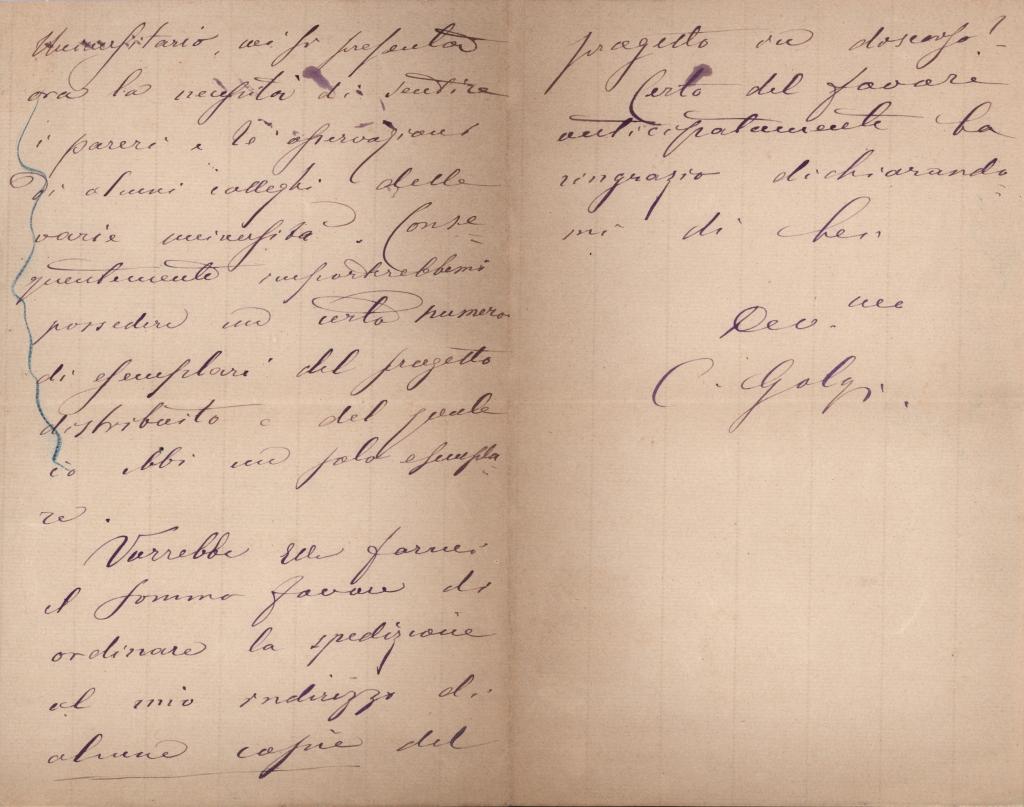 Universitario, mi si presenta
ora la necessità di sentire
i pareri e le osservazioni
di alcuni colleghi delle
varie università. Conse
guentemente importerebbemi
possedere un certo numero
di esemplari del progetto
distribuito e del quale
io ebbi un solo esempla
re.
Vorrebbe Ella farmi
il sommo favore di
ordinare la spedizione
al mio indirizzo di
alcune copie del
progetto in discorso?
Certo del favore
anticipatamente La
ringrazio dichiarando
mi di Lei
Dev.mo
C. Golgi.